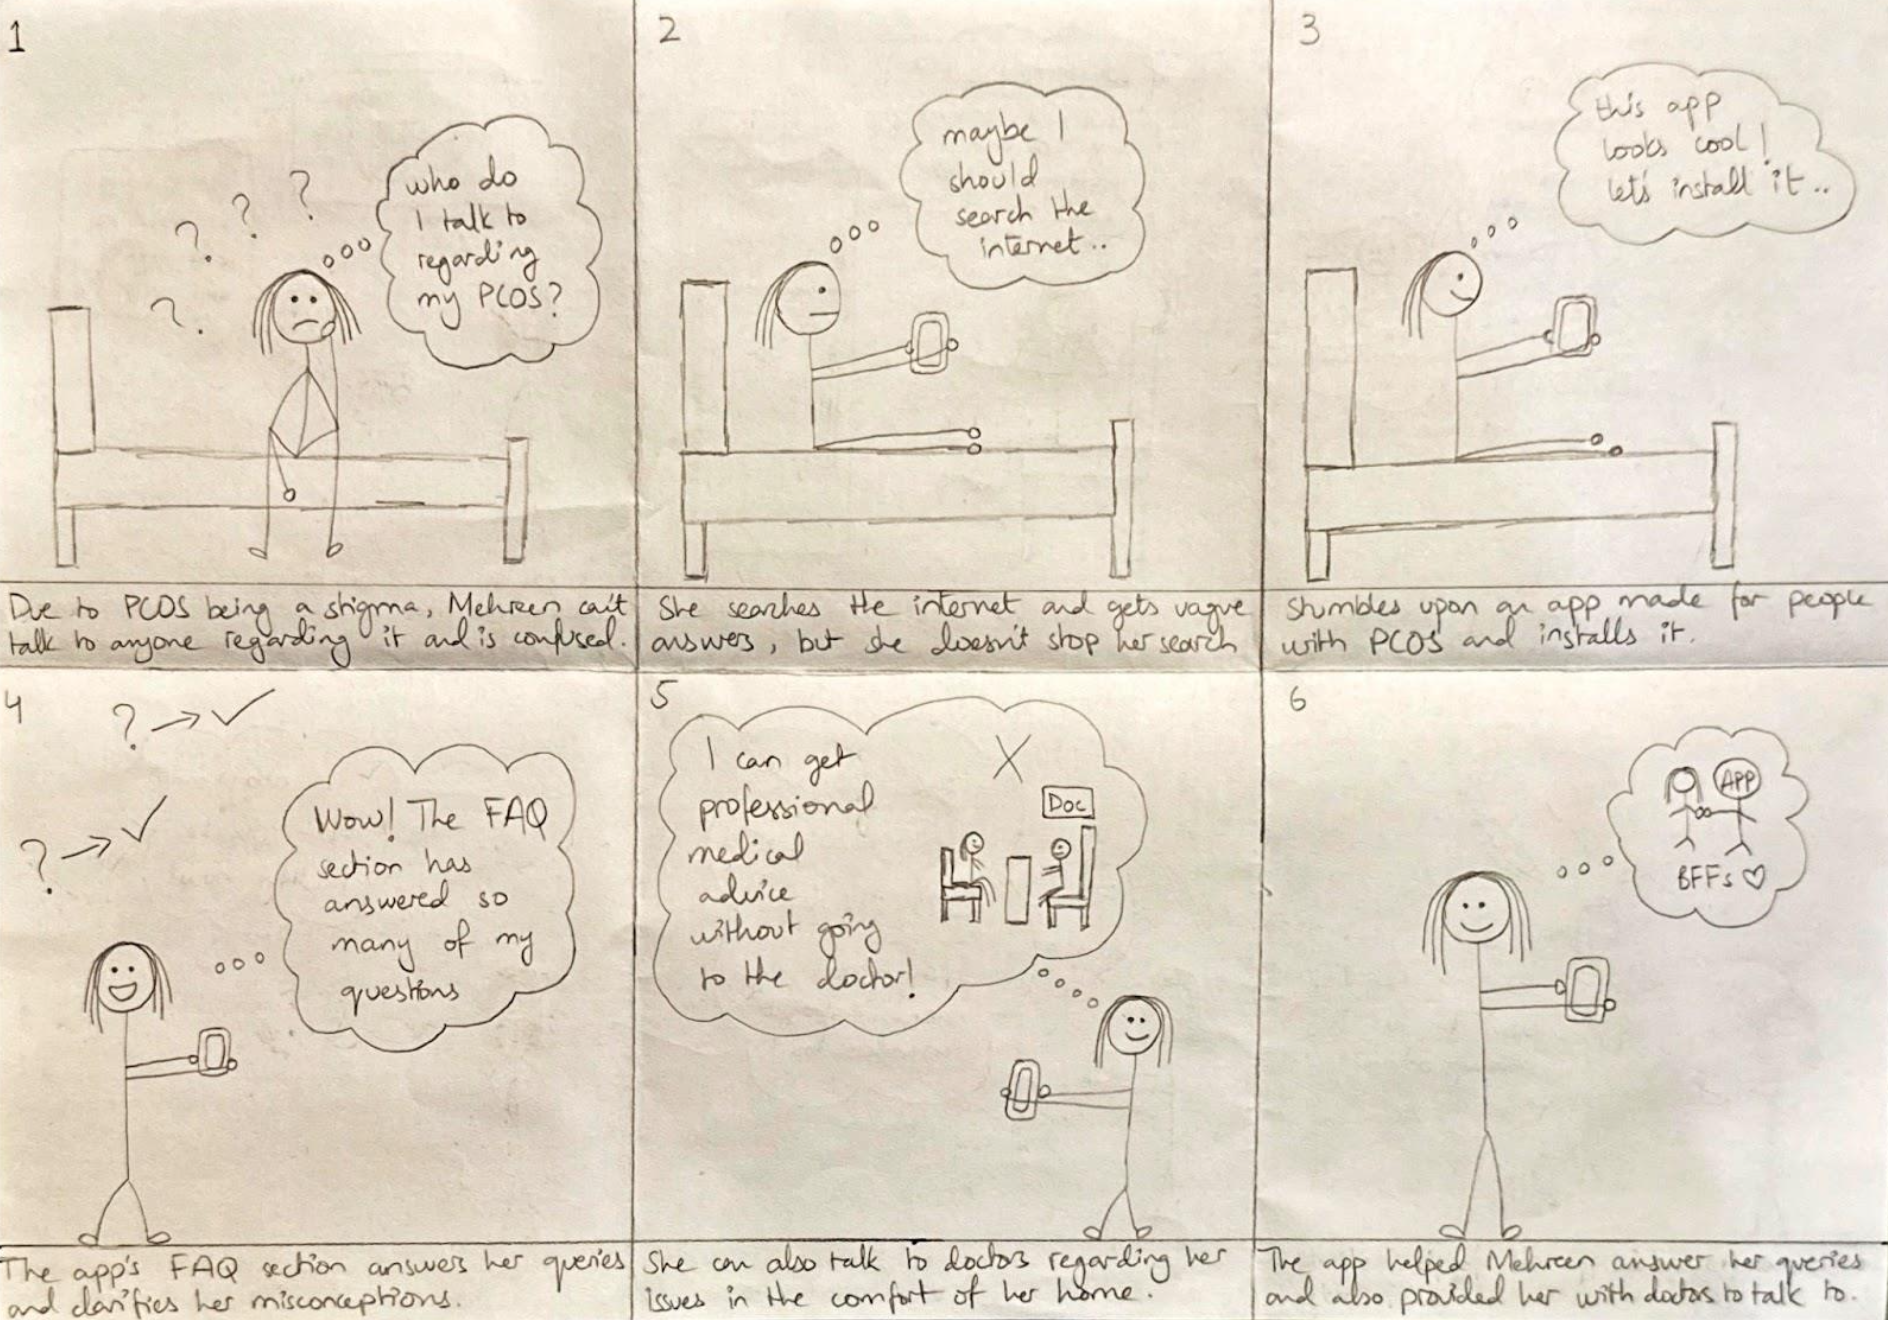 1
? ? ? ?
who do
I talk to
regarding
my PCOS?
Due to PCOS being a stigma, Mehreen can't
talk to anyone regarding it and is confused.
2
maybe I
should
search the
internet..
She searches the internet and gets vague
answers, but she doesn't stop her search
3
this app
looks cool!
let's install it..
Stumbles upon an app made for people
with PCOS and installs it.
4
? → ✓
? → ✓
Wow! The FAQ
section has
answered so
many of my
questions
The app's FAQ section answers her queries
and clarifies her misconceptions.
5
I can get
professional
medical
advice
without going
to the doctor!
X
Doc
She can also talk to doctors regarding her
issues in the comfort of her home.
6
APP
BFFs ♡
The app helped Mehreen answer her queries
and also provided her with doctors to talk to.